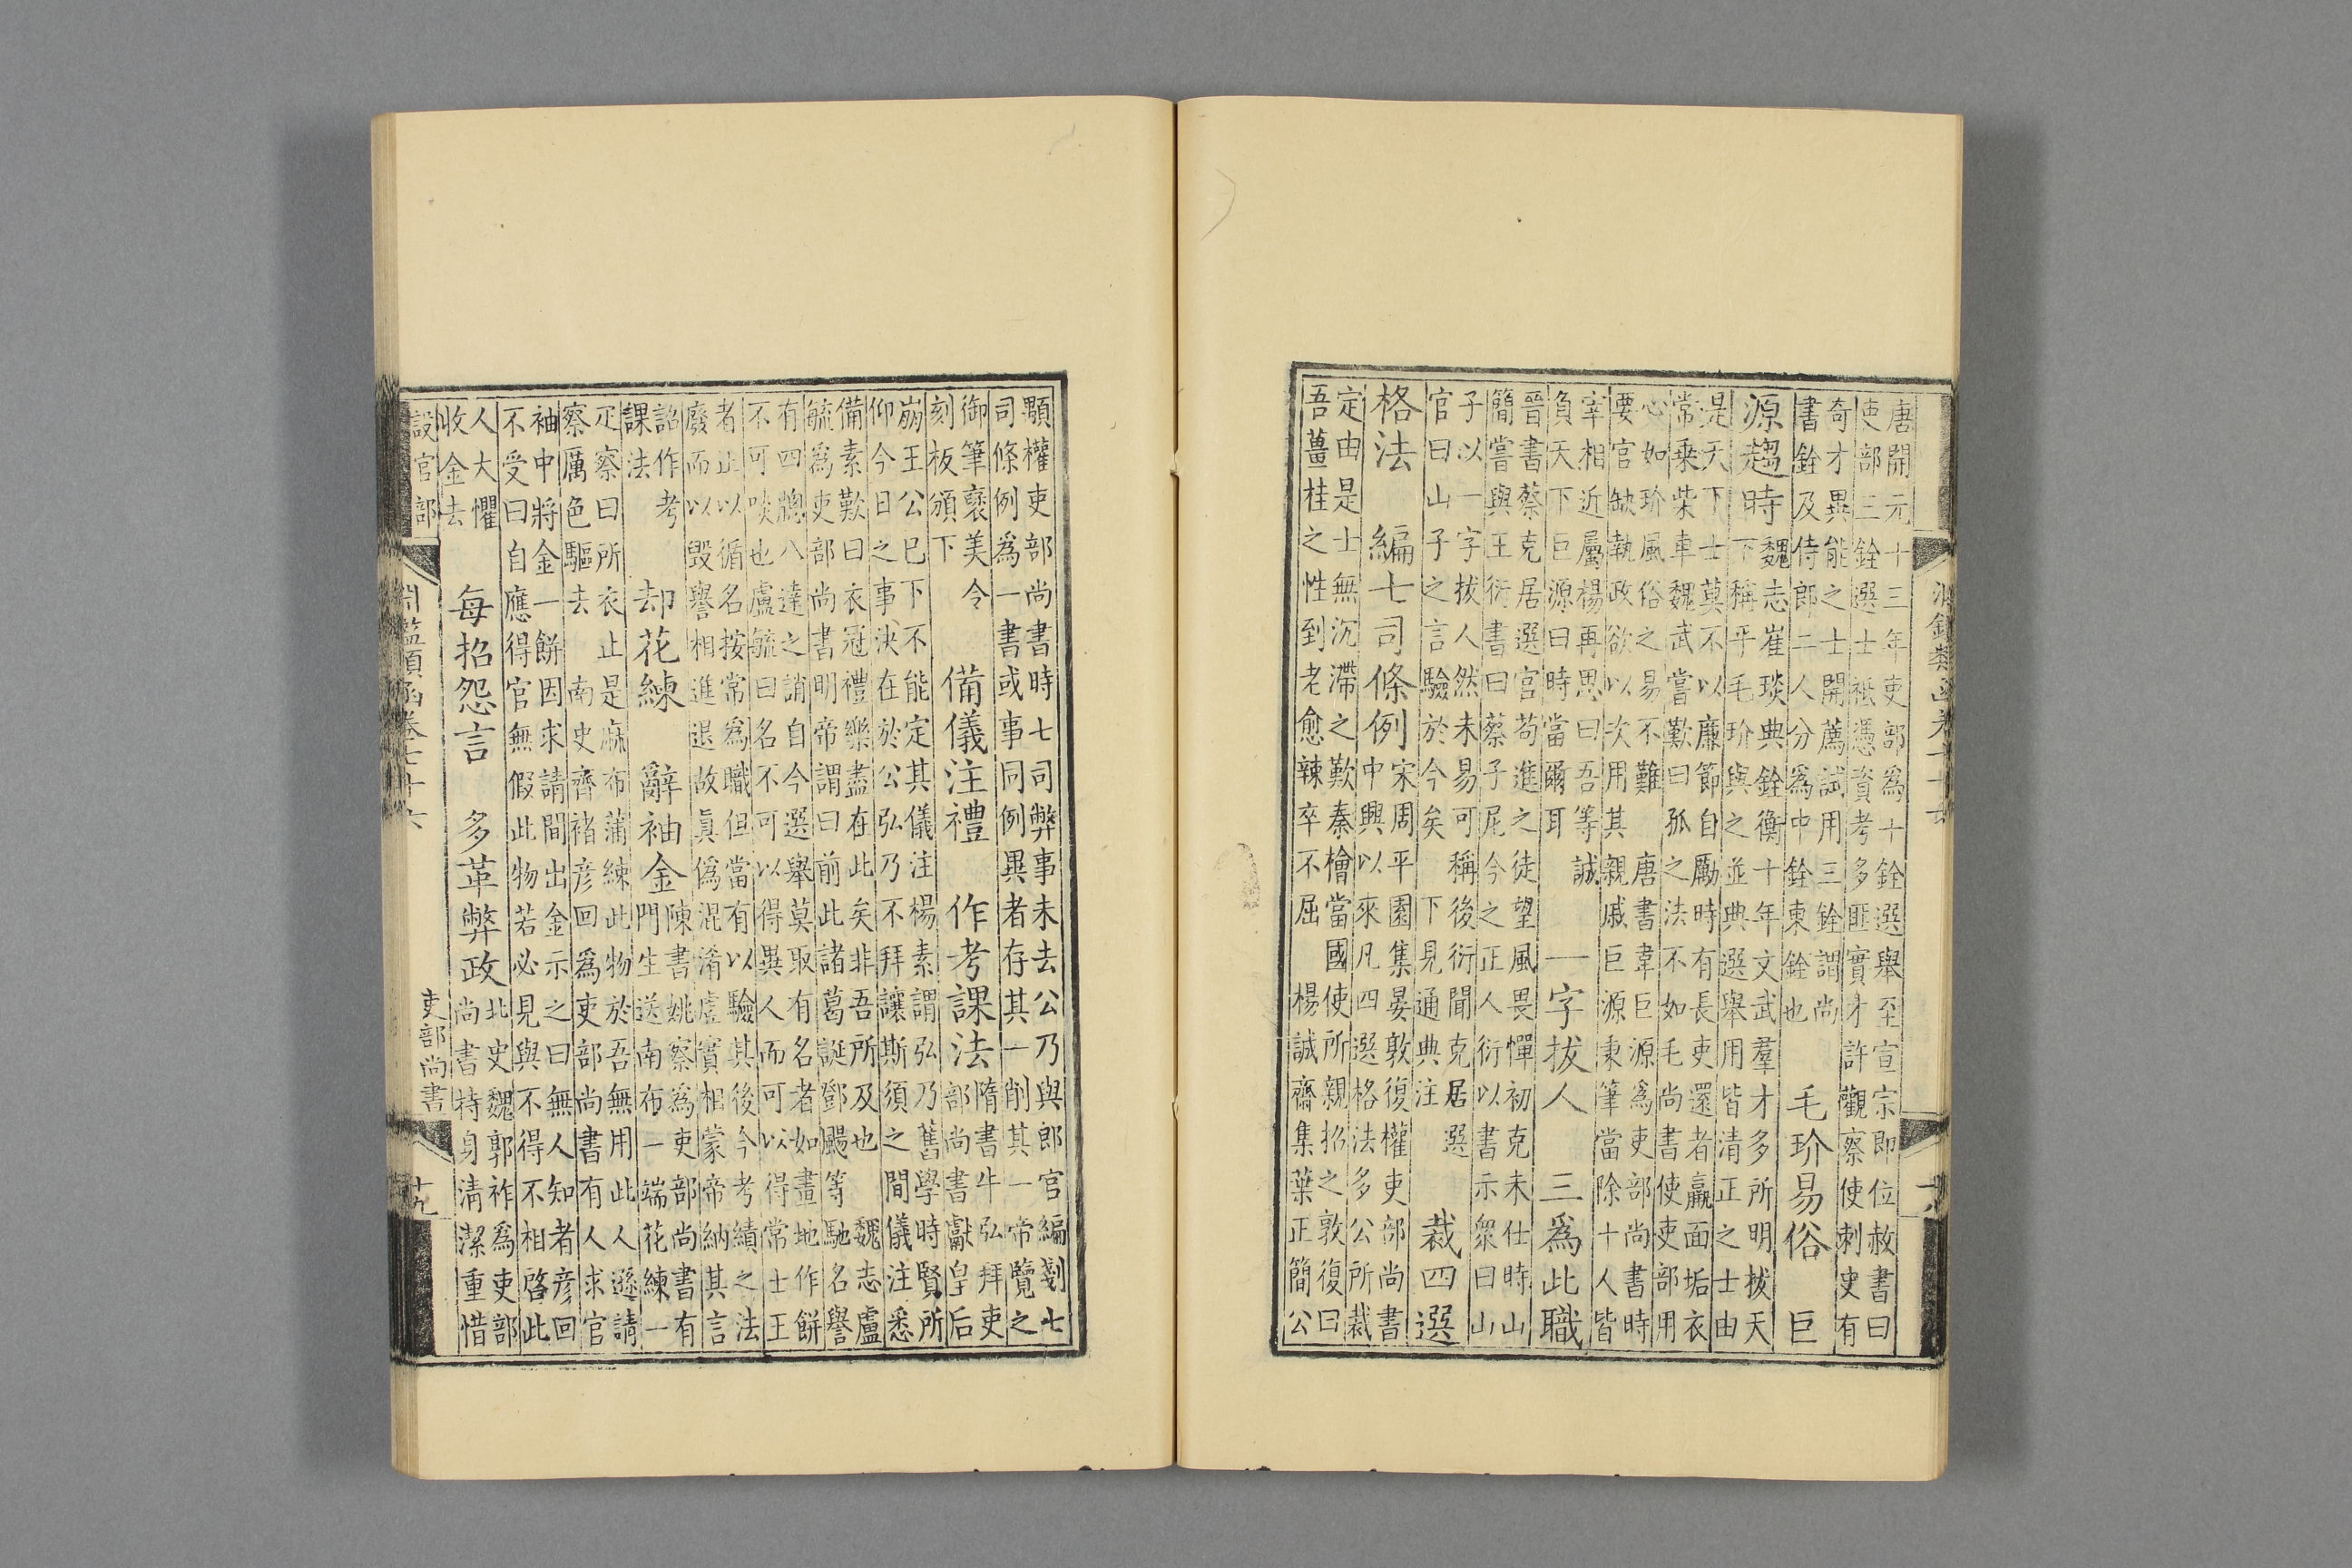 淵鑑類函卷七十六 十八
唐開元十三年吏部為十銓選舉至宣宗即位赦書曰
吏部三銓選士祗憑資考多匪實才許觀察使刺史有
奇才異能之士開薦試用三銓謂尚
書銓及侍郎二人分為中銓東銓也
毛玠易俗 巨
源趨時
魏志崔琰典銓衡十年文武羣才多所明拔天
下稱平毛玠與之並典選舉用皆清正之士由
是天下士莫不以廉節自勵時有長吏還者羸面垢衣
常乘柴車魏武嘗歎曰孤之法不如毛尚書使吏部用
心如玠風俗之易不難 唐書韋巨源為吏部尚書時
要官缺執政欲以次用其親戚巨源秉筆當除十人皆
宰相近屬楊再思曰吾等誠
負天下巨源曰時當爾耳
一字拔人 三為此職
晉書蔡克居選官苟進之徒望風畏憚初克未仕時山
簡嘗與王衍書曰蔡子尼今之正人衍以書示衆曰山
子以一字拔人然未易可稱後衍聞克居選
官曰山子之言驗於今矣 下見通典注
裁四選
格法 編七司條例
宋周平園集晏敦復權吏部尚書
中興以來凡四選格法多公所裁
定由是士無沉滯之歎秦檜當國使所親招之敦復曰
吾薑桂之性到老愈辣卒不屈 楊誠齋集葉正簡公
顒權吏部尚書時七司弊事未去公乃與郎官編剗七
司條例為一書或事同例異者存其一削其一帝覽之
御筆襃美令
刻板頒下
備儀注禮 作考課法
隋書牛弘拜吏
部尚書獻皇后
崩王公已下不能定其儀注楊素謂弘乃舊學時賢所
仰今日之事決在於公弘乃不拜讓斯須之間儀注悉
備素歎曰衣冠禮樂盡在此矣非吾所及也 魏志盧
毓為吏部尚書明帝謂曰前此諸葛誕鄧颺等馳名譽
有四牕八達之誚自今選舉莫取有名者如畫地作餅
不可啖也盧毓曰名不可以得異人而可以得常士王
者止以循名按常為職但當有以驗其後今考績之法
廢而以毀譽相進退故眞偽混淆虛實相蒙帝納其言
詔作考
課法
却花練 辭袖金
陳書姚察為吏部尚書有
門生送南布一端花練一
疋察曰所衣止是麻布蒲練此物於吾無用此人遜請
察厲色驅去 南史齊褚彥回為吏部尚書有人求官
袖中將金一餅因求請間出金示之曰無人知者彥回
不受曰自應得官無假此物若必見與不得不相啓此
人大懼
收金去
每招怨言 多革弊政
北史魏郭祚為吏部
尚書持身清潔重惜
設官部 淵鑑類函卷七十六 吏部尚書 十九